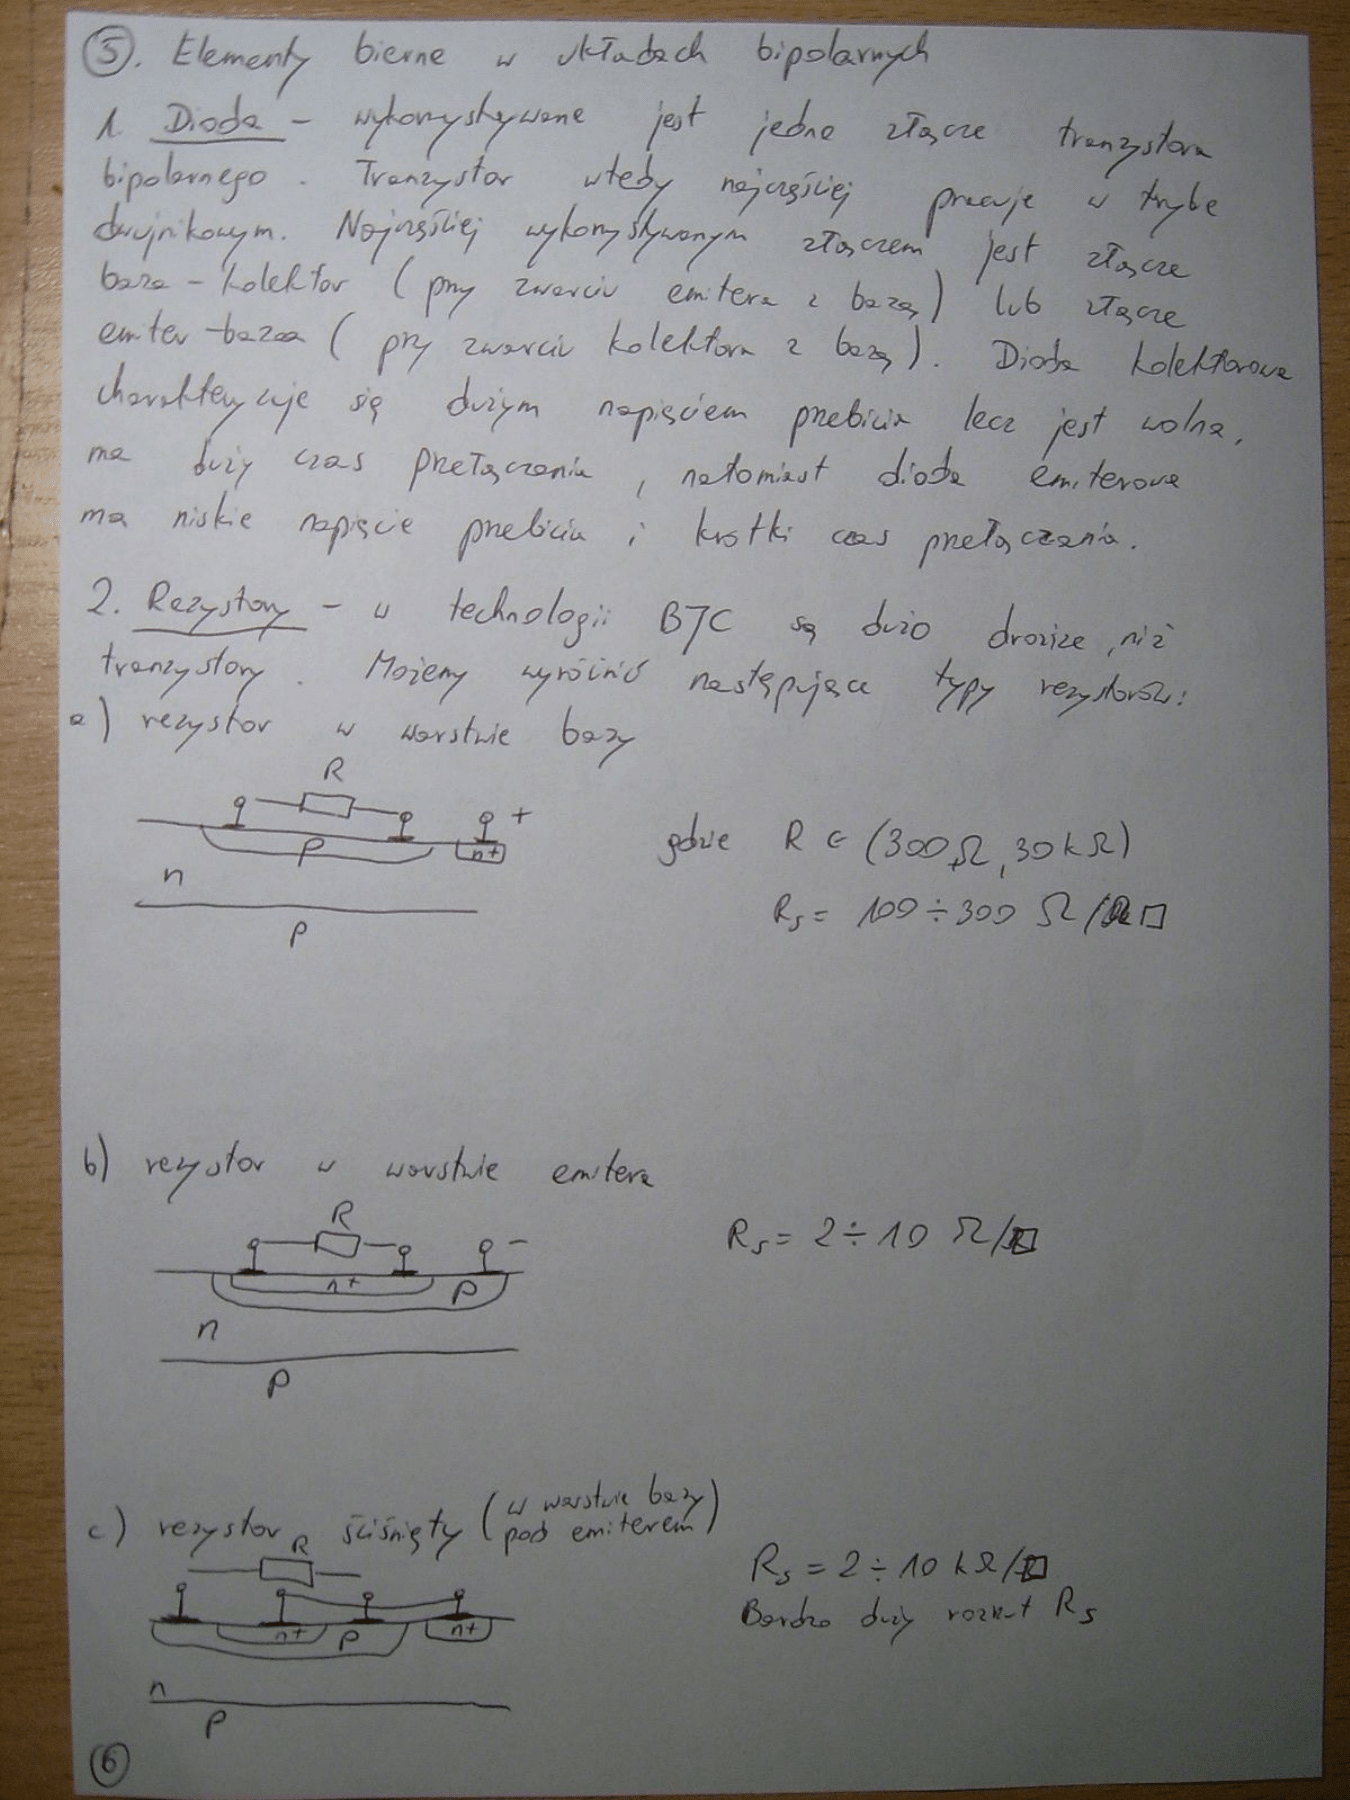 5. Elementy bierne w układach bipolarnych
1. Dioda - wykorzystywane jest jedno złącze tranzystora
bipolarnego. Tranzystor wtedy najczęściej pracuje w trybie
dwójnikowym. Najczęściej wykorzystywanym złączem jest złącze
baza-kolektor (przy zwarciu emitera z bazą) lub złącze
emiter-baza (przy zwarciu kolektora z bazą). Dioda kolektorowa
charakteryzuje się dużym napięciem przebicia lecz jest wolna,
ma duży czas przełączania, natomiast dioda emiterowa
ma niskie napięcie przebicia i krótki czas przełączania.
2. Rezystory - w technologii BJC są dużo droższe, niż
tranzystory. Możemy wyróżnić następujące typy rezystorów:
a) rezystor w warstwie bazy
R
+
p
n+
n
p
gdzie R ∈ (300Ω, 30kΩ)
Rs = 100÷300 Ω/□
b) rezystor w warstwie emitera
R
-
n+
p
n
p
Rs = 2÷10 Ω/□
c) rezystor ściśnięty (w warstwie bazy
pod emiterem)
R
n+
p
n+
n
p
Rs = 2÷10 kΩ/□
Bardzo duży rozrzut Rs
6